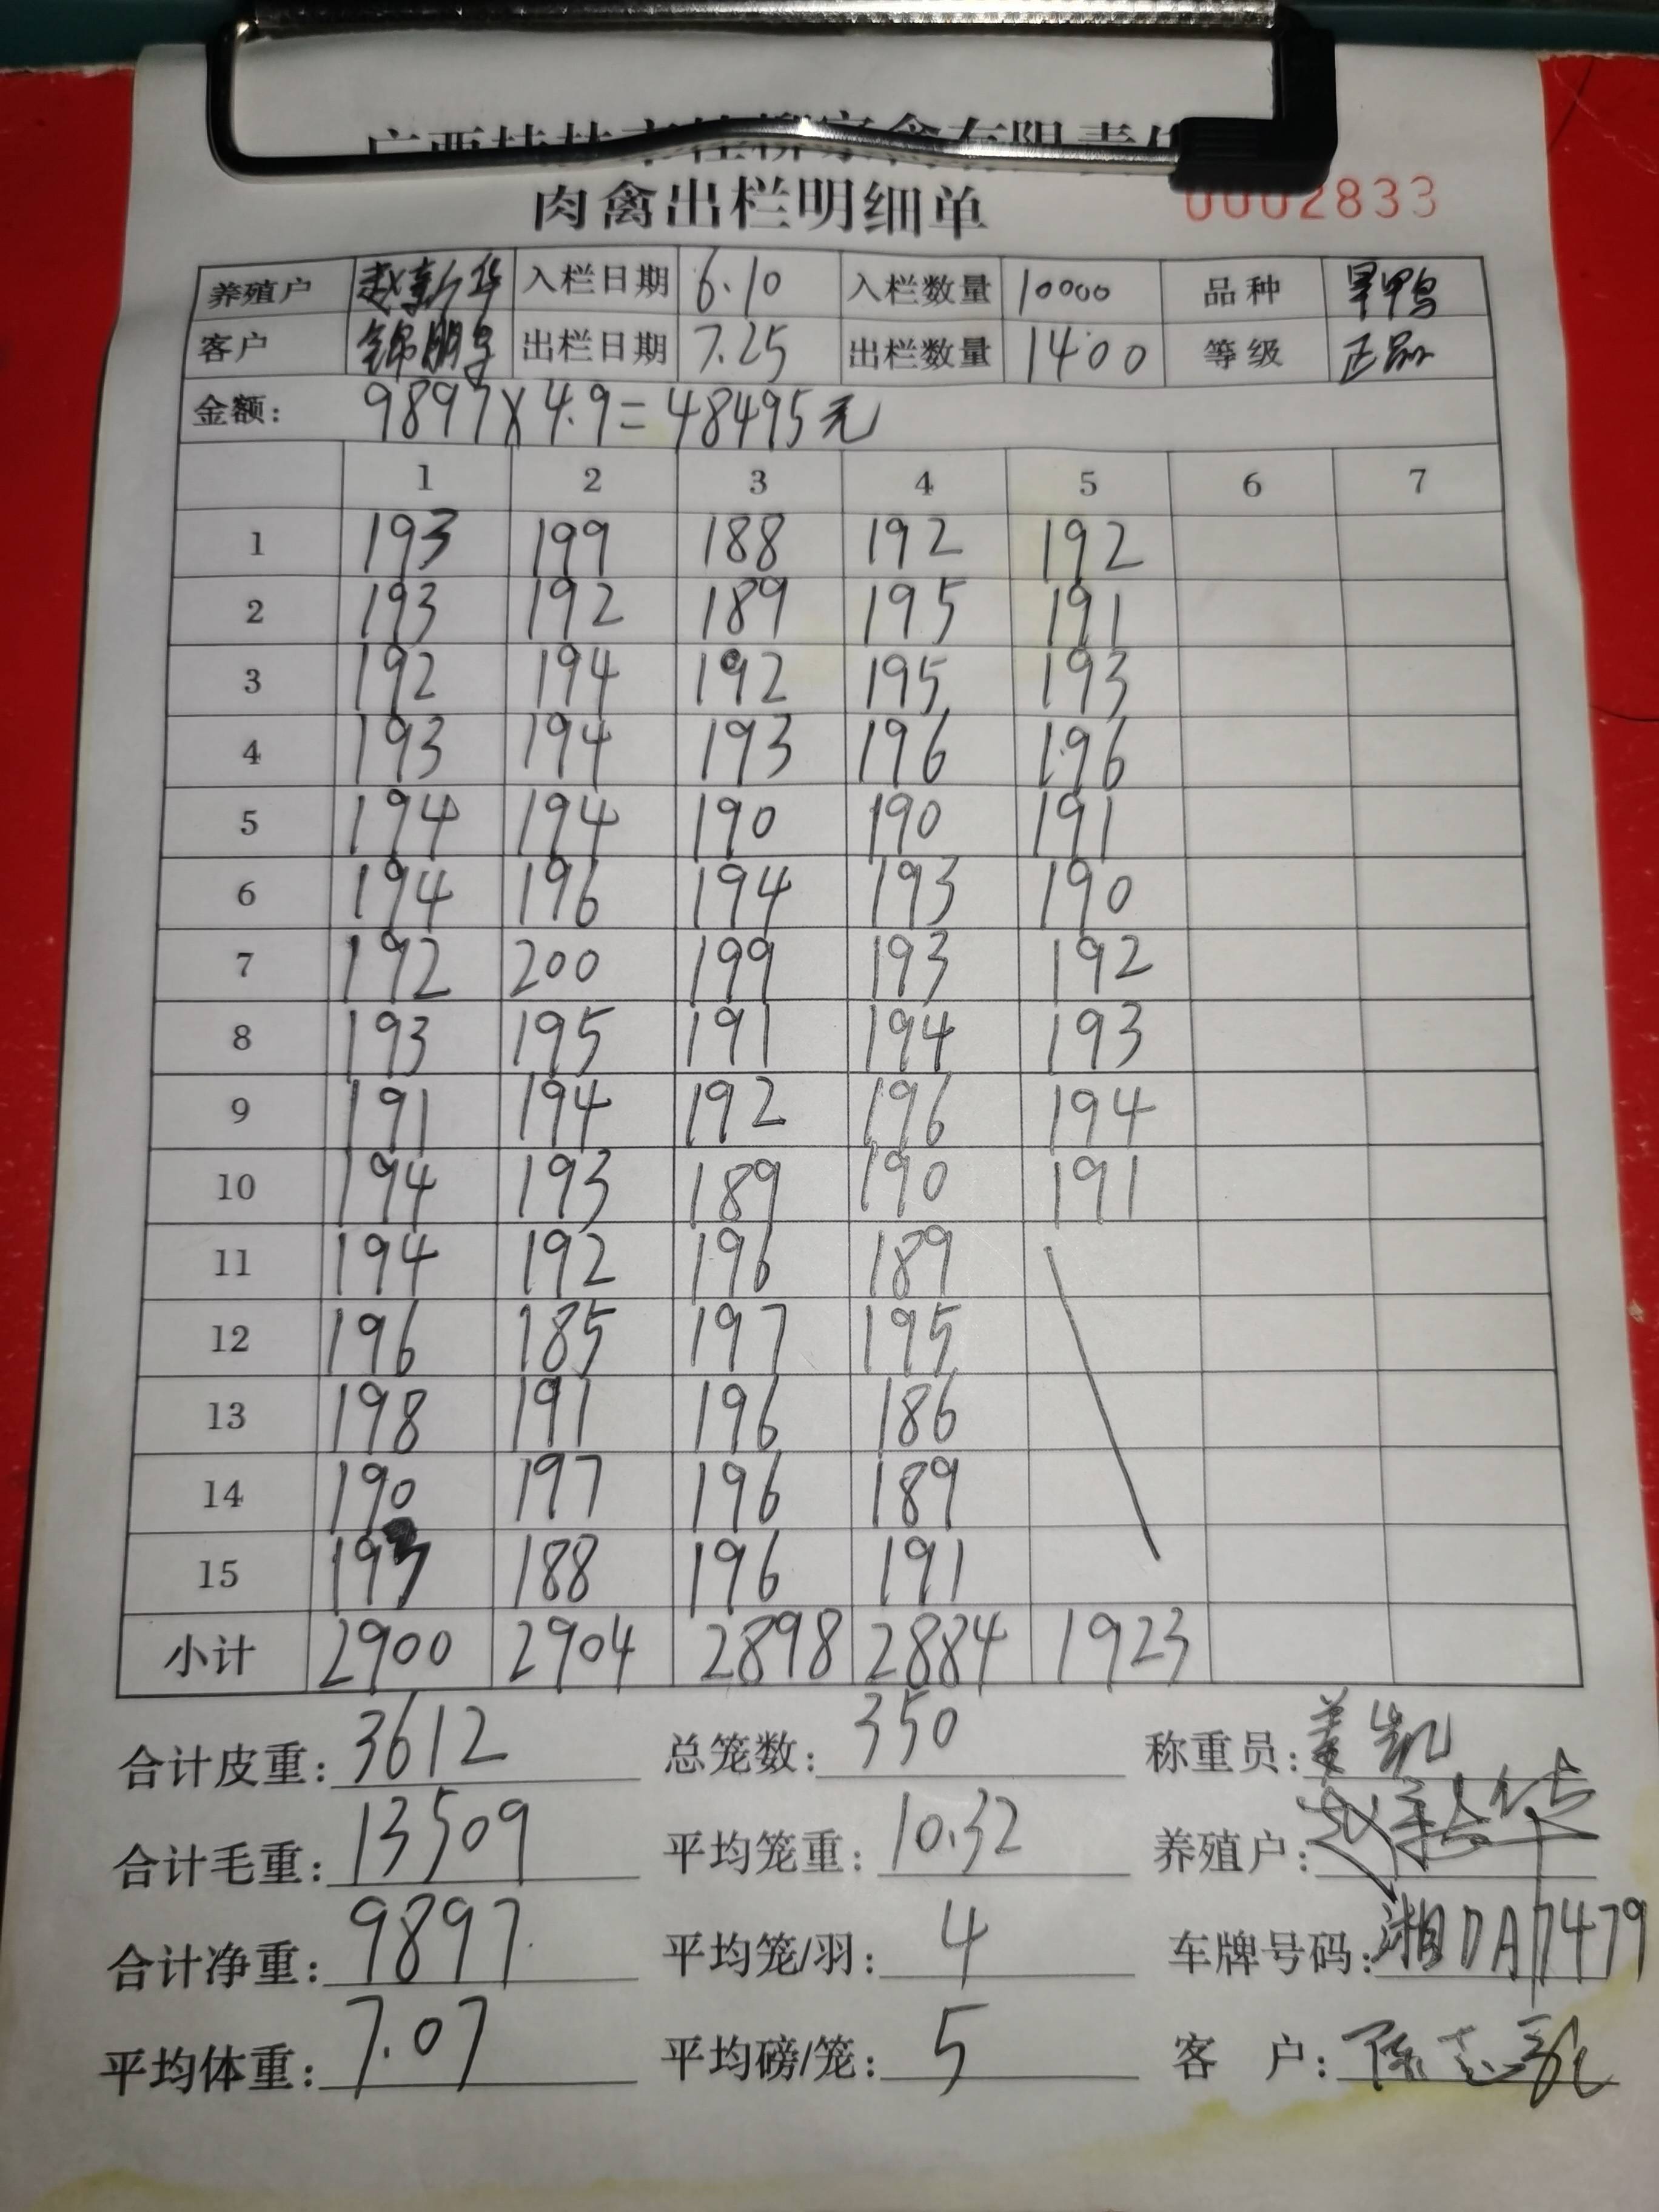 肉禽出栏明细单
0002833
养殖户 赵新华 入栏日期 6.10 入栏数量 10000 品种 旱鸭
客户 锦鹏 出栏日期 7.25 出栏数量 1400 等级 正品
金额: 9897×4.9=48495元
1 2 3 4 5 6 7
1 193 199 188 192 192
2 193 192 189 195 191
3 192 194 192 195 193
4 193 194 193 196 196
5 194 194 190 190 191
6 194 196 194 193 190
7 192 200 199 193 192
8 193 195 191 194 193
9 191 194 192 196 194
10 194 193 189 190 191
11 194 192 196 189
12 196 185 197 195
13 198 191 196 186
14 190 197 196 189
15 193 188 196 191
小计 2900 2904 2898 2884 1923
合计皮重: 3612 总笼数: 350 称重员: 姜凯
合计毛重: 13509 平均笼重: 10.32 养殖户: 赵新华
合计净重: 9897 平均笼/羽: 4 车牌号码: 湘DA7479
平均体重: 7.07 平均磅/笼: 5 客 户: 陈志